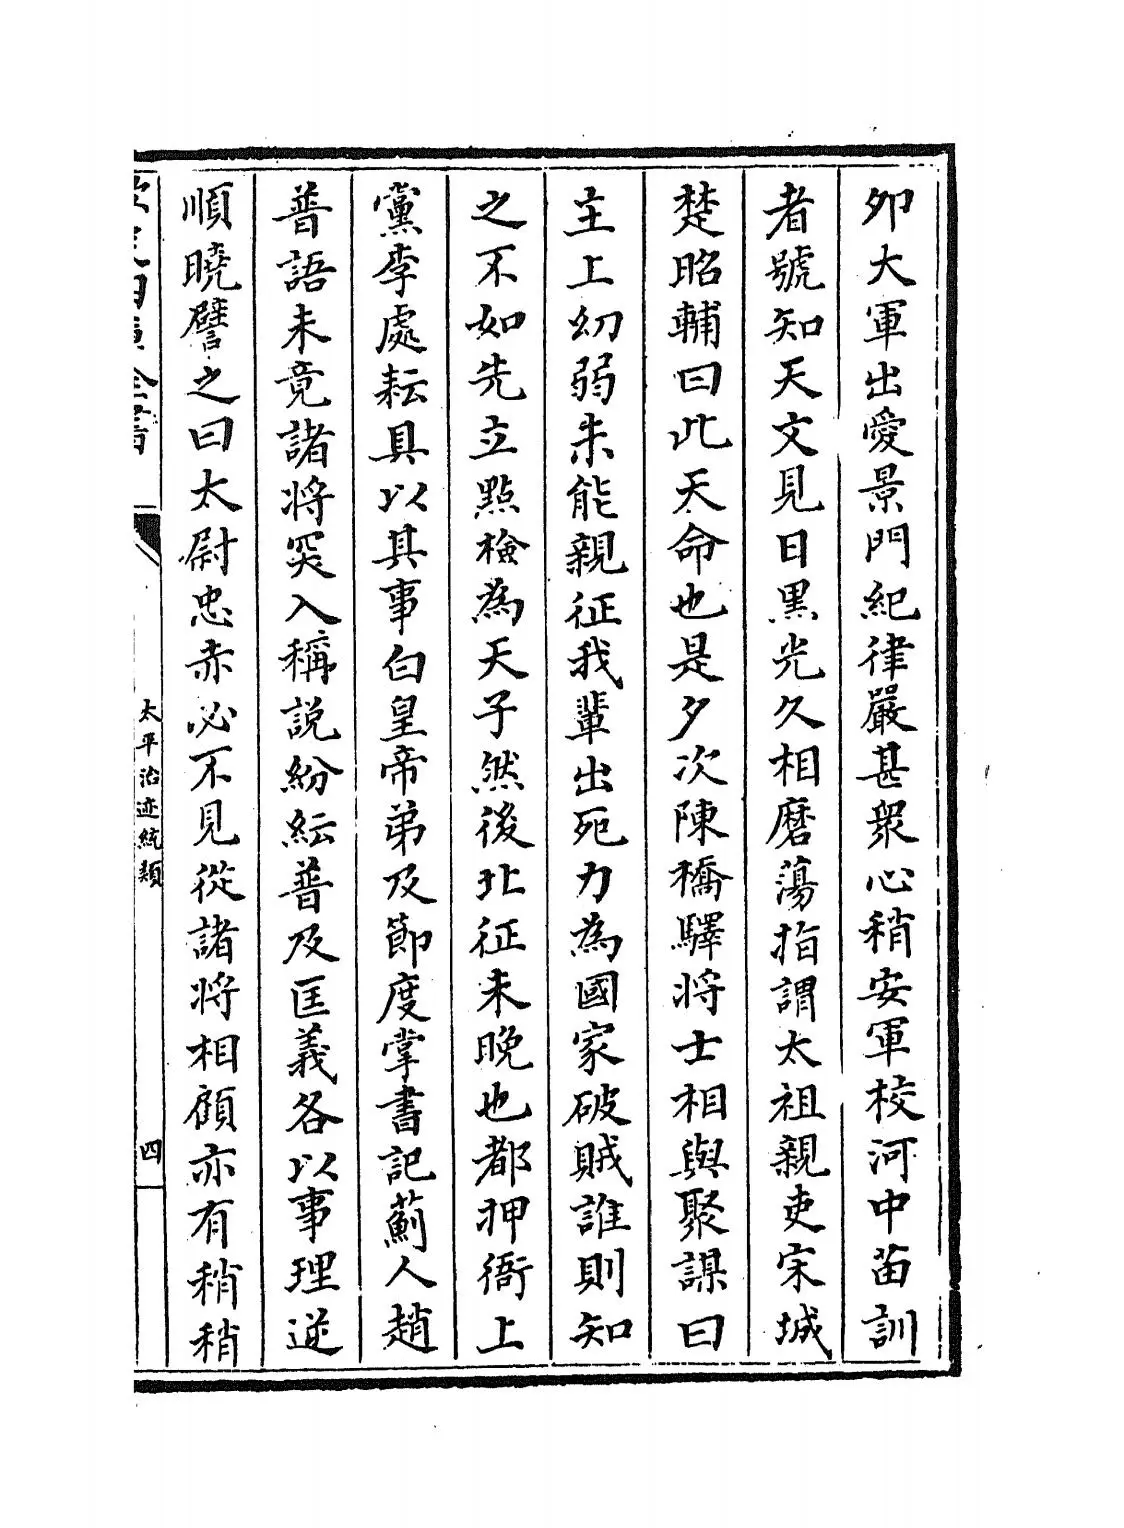 夘大軍出愛景門紀律嚴甚衆心稍安軍校河中苖訓
者號知天文見日黑光久相磨蕩指謂太祖親吏宋城
楚昭輔曰此天命也是夕次陳橋驛將士相與聚謀曰
主上幼弱未能親征我輩出死力為國家破賊誰則知
之不如先立點檢為天子然後北征未晚也都押衙上
黨李處耘具以其事白皇帝弟及節度掌書記薊人趙
普語未竟諸將突入稱說紛紜普及匡義各以事理逆
順曉譬之曰太尉忠赤必不見從諸將相顧亦有稍稍
太平治迹統類
四